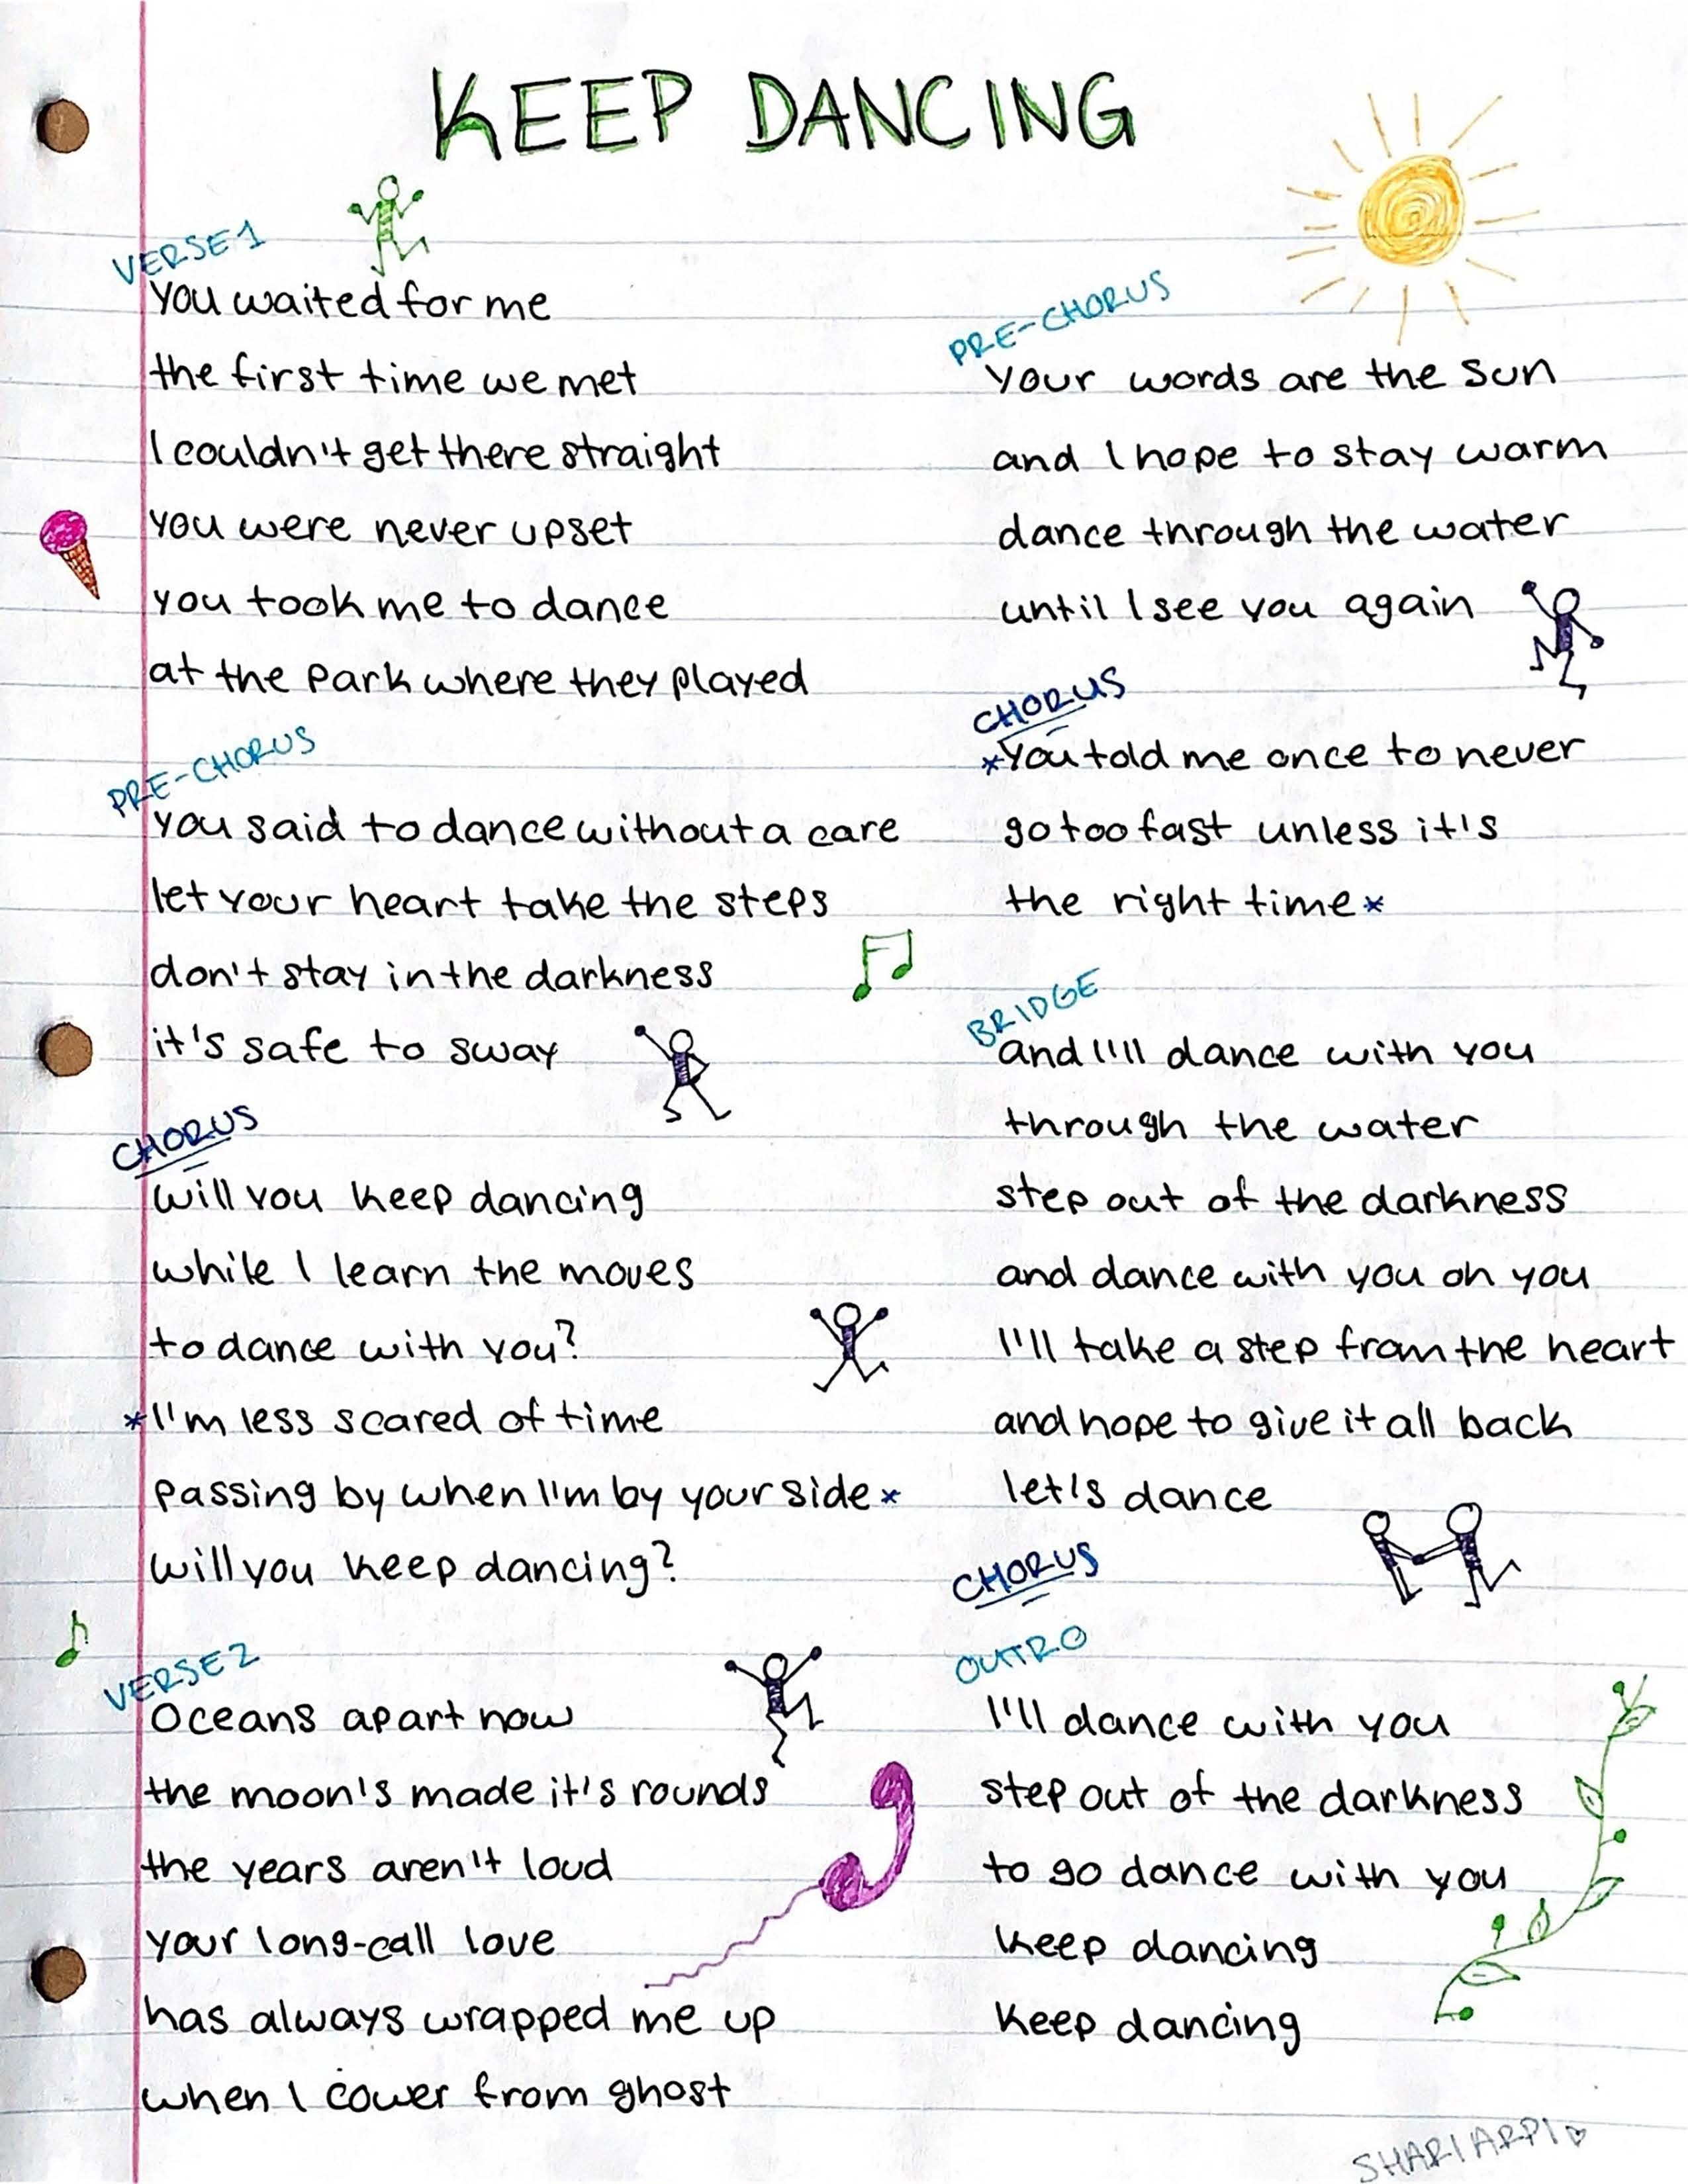 KEEP DANCING
VERSE 1
You waited for me
the first time we met
I couldn't get there straight
you were never upset
you took me to dance
at the park where they played
PRE-CHORUS
you said to dance without a care
let your heart take the steps
don't stay in the darkness
it's safe to sway
CHORUS
will you keep dancing
while I learn the moves
to dance with you?
*I'm less scared of time
passing by when I'm by your side*
will you keep dancing?
VERSE 2
Oceans apart now
the moon's made it's rounds
the years aren't loud
your long-call love
has always wrapped me up
when I cower from ghost
PRE-CHORUS
Your words are the sun
and I hope to stay warm
dance through the water
until I see you again
CHORUS
*You told me once to never
go too fast unless it's
the right time*
BRIDGE
and I'll dance with you
through the water
step out of the darkness
and dance with you oh you
I'll take a step from the heart
and hope to give it all back
let's dance
CHORUS
OUTRO
I'll dance with you
step out of the darkness
to go dance with you
keep dancing
keep dancing
SHARI ARPI♡